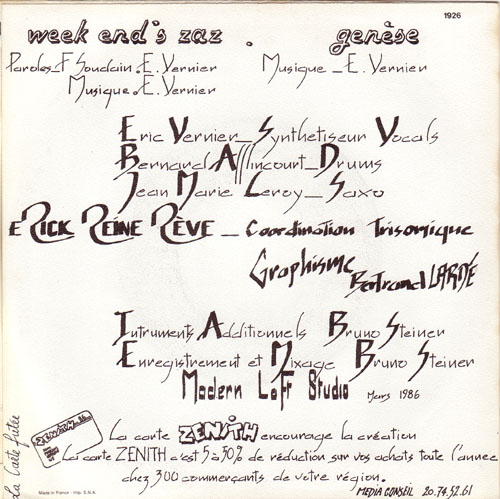 1926
week end's zaz . genèse
Paroles_F Soudain.E.Vernier Musique_E.Vernier
Musique.E.Vernier
Eric Vernier_Synthetiseur Vocals
Bernard Allincourt_Drums
Jean Marie Leroy_Saxo
eRick Reine Rêve_Coordination Trisomique
Graphisme Bertrand LARDÉ
Intruments Additionnels Bruno Steiner
Enregistrement et Mixage Bruno Steiner
Modern Loft Studio Mars 1986
La Carte futée
ZENITH
La carte ZENITH encourage la création
La carte ZENITH c'est 5 à 50% de réduction sur vos achats toute l'année
chez 300 commerçants de votre région.
Made in France - Imp. S.N.A.
MEDIA CONSEIL 20.74.52.61